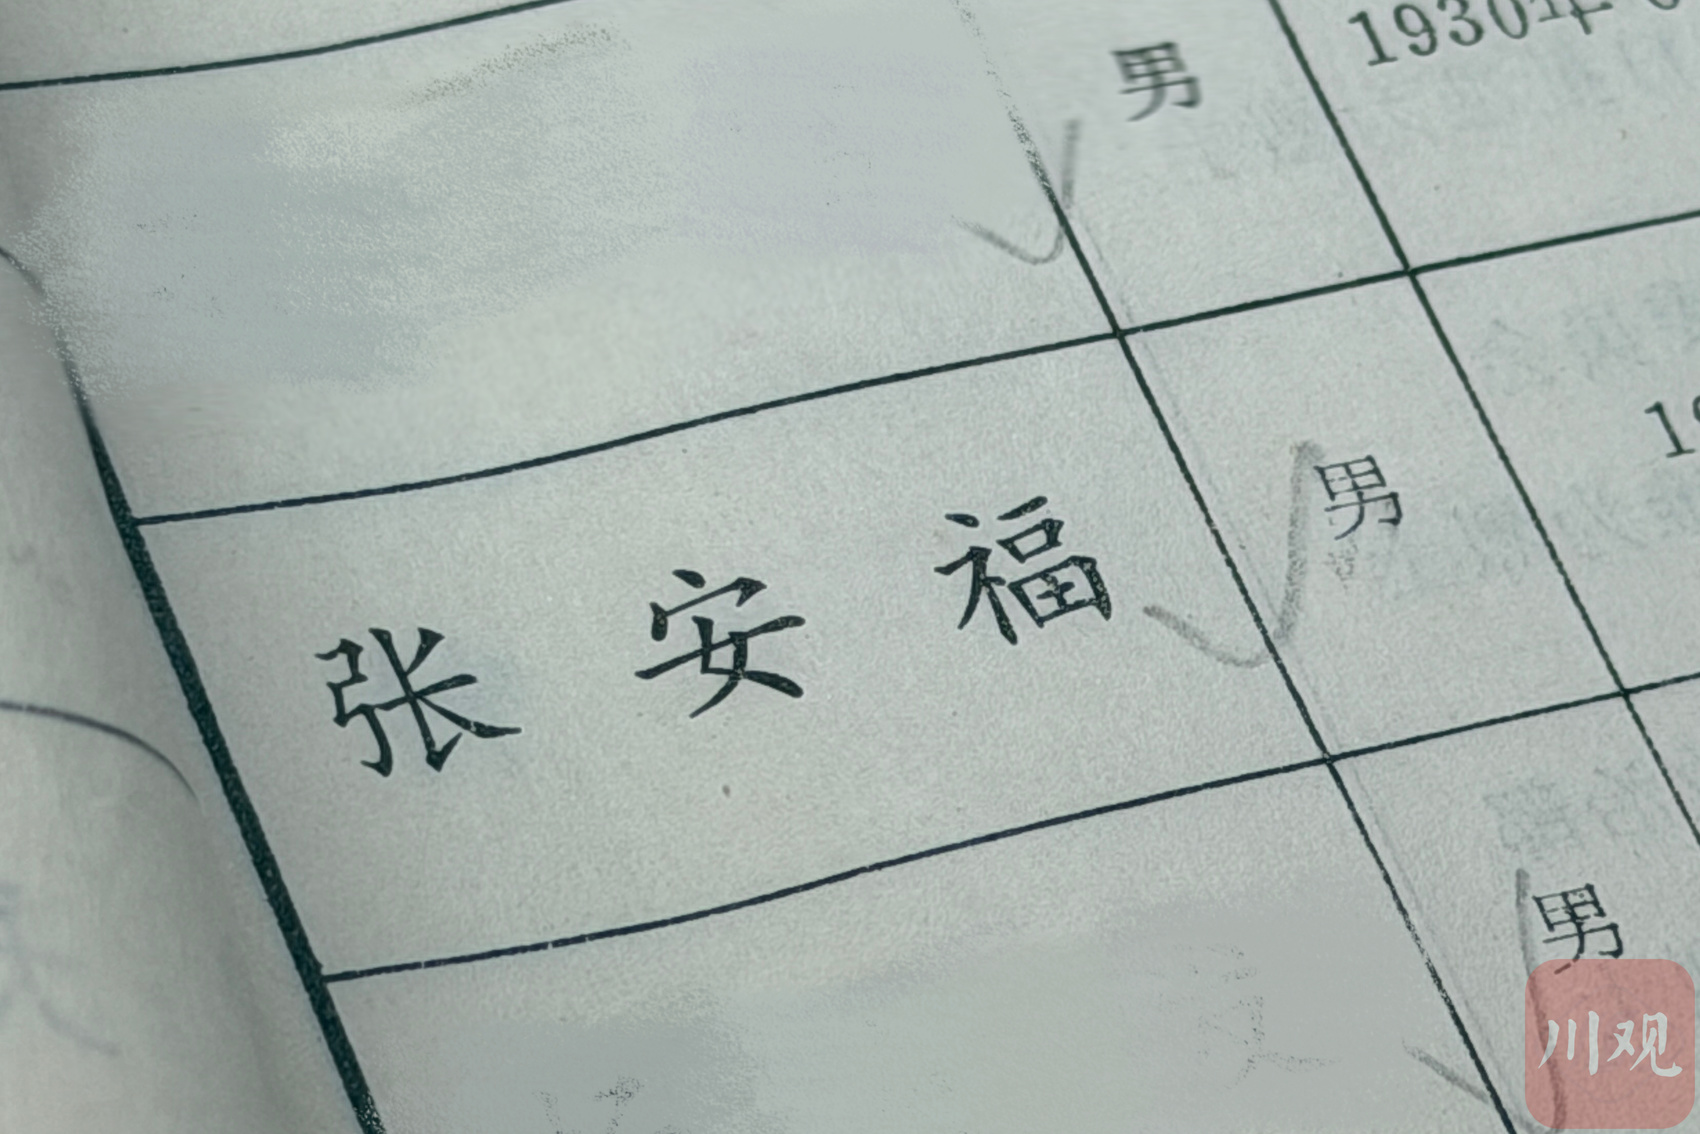 男 1930年
张安福 男 19
男
川观